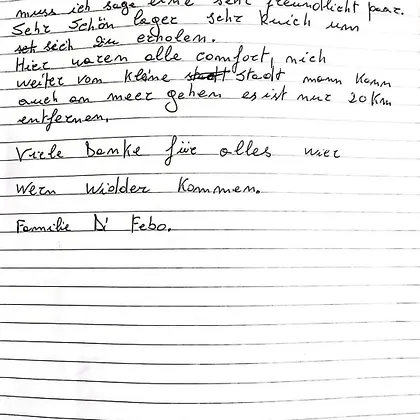 muss ich sage eine sehr freundlicht paar.
Sehr Schön lager sehr Ruich um
sich zu erholen.
Hier waren alle comfort, nich
weiter von kleine stadt mann kann
auch an meer gehen es ist nur 20 Km
entfernen.
Viele Danke für alles wier
wern widder kommen.
Familie D' Febo.